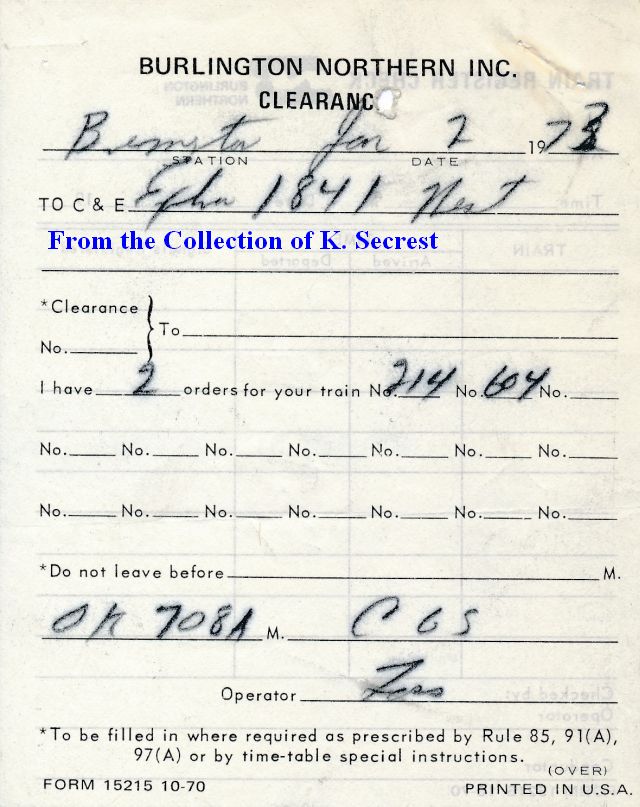 BURLINGTON NORTHERN INC.
CLEARANC
Jan 2 1973
STATION DATE
TO C & E Extra 1841 West
From the Collection of K. Secrest
*Clearance
No. To
I have 2 orders for your train No. 214 No. 604 No.
No. No. No. No. No. No. No.
No. No. No. No. No. No. No.
*Do not leave before M.
OK 708A M. C G S
Operator
*To be filled in where required as prescribed by Rule 85, 91(A),
97(A) or by time-table special instructions.
(OVER)
FORM 15215 10-70 PRINTED IN U.S.A.